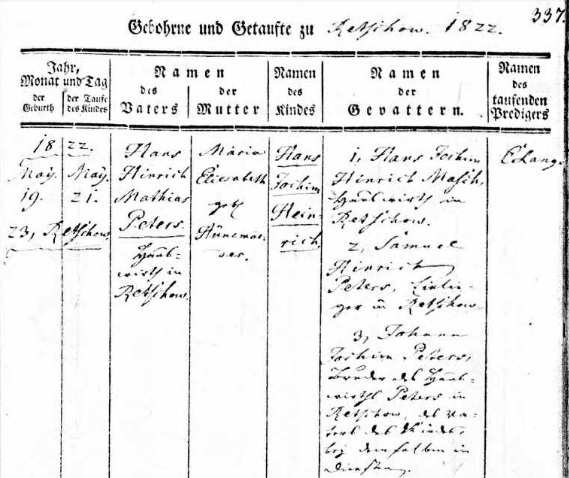 337.
Gebohrne und Getaufte zu Retschow. 1822.
Jahr, Monat und Tag
der Geburth
der Taufe des Kindes
Namen des Vaters
Namen der Mutter
Namen des Kindes
Namen der Gevattern.
Namen des taufenden Predigers
1822.
May. 19.
May. 21.
23, Retschow.
Hans
Hinrich
Mathias
Peters.
Haus-
wirth in
Retschow.
Maria
Elisabeth
geb.
Hans
Jochim
Hein-
rich.
1, Hans Jochim
Hinrich Masch,
Hauswirth in
Retschow.
2, Samuel
Hinrich
Peters, Einlie-
ger in Retschow
3, Johann
Jochim Peters,
Bruder des Haus-
wirths Peters in
Retschow, des Va-
ters des Kindes,
bey demselben in